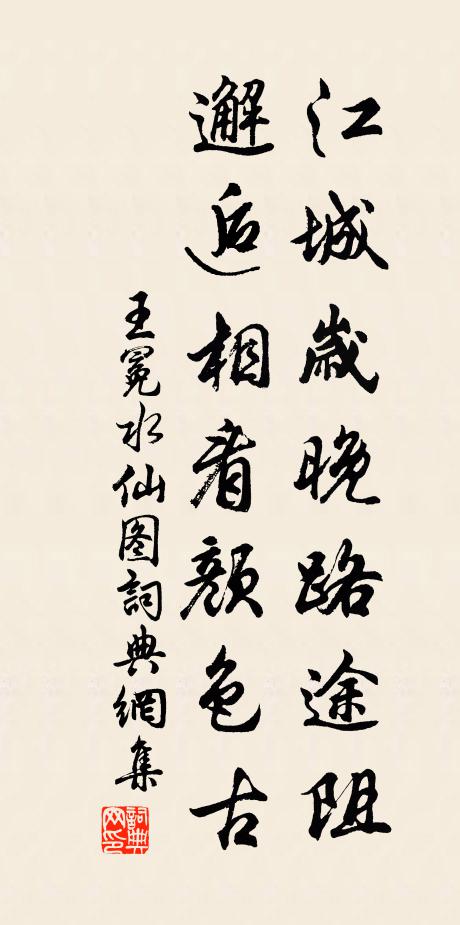 江城歲晚路途阻
邂逅相看顏色古
王冕水仙图詞典網集
詞典網印